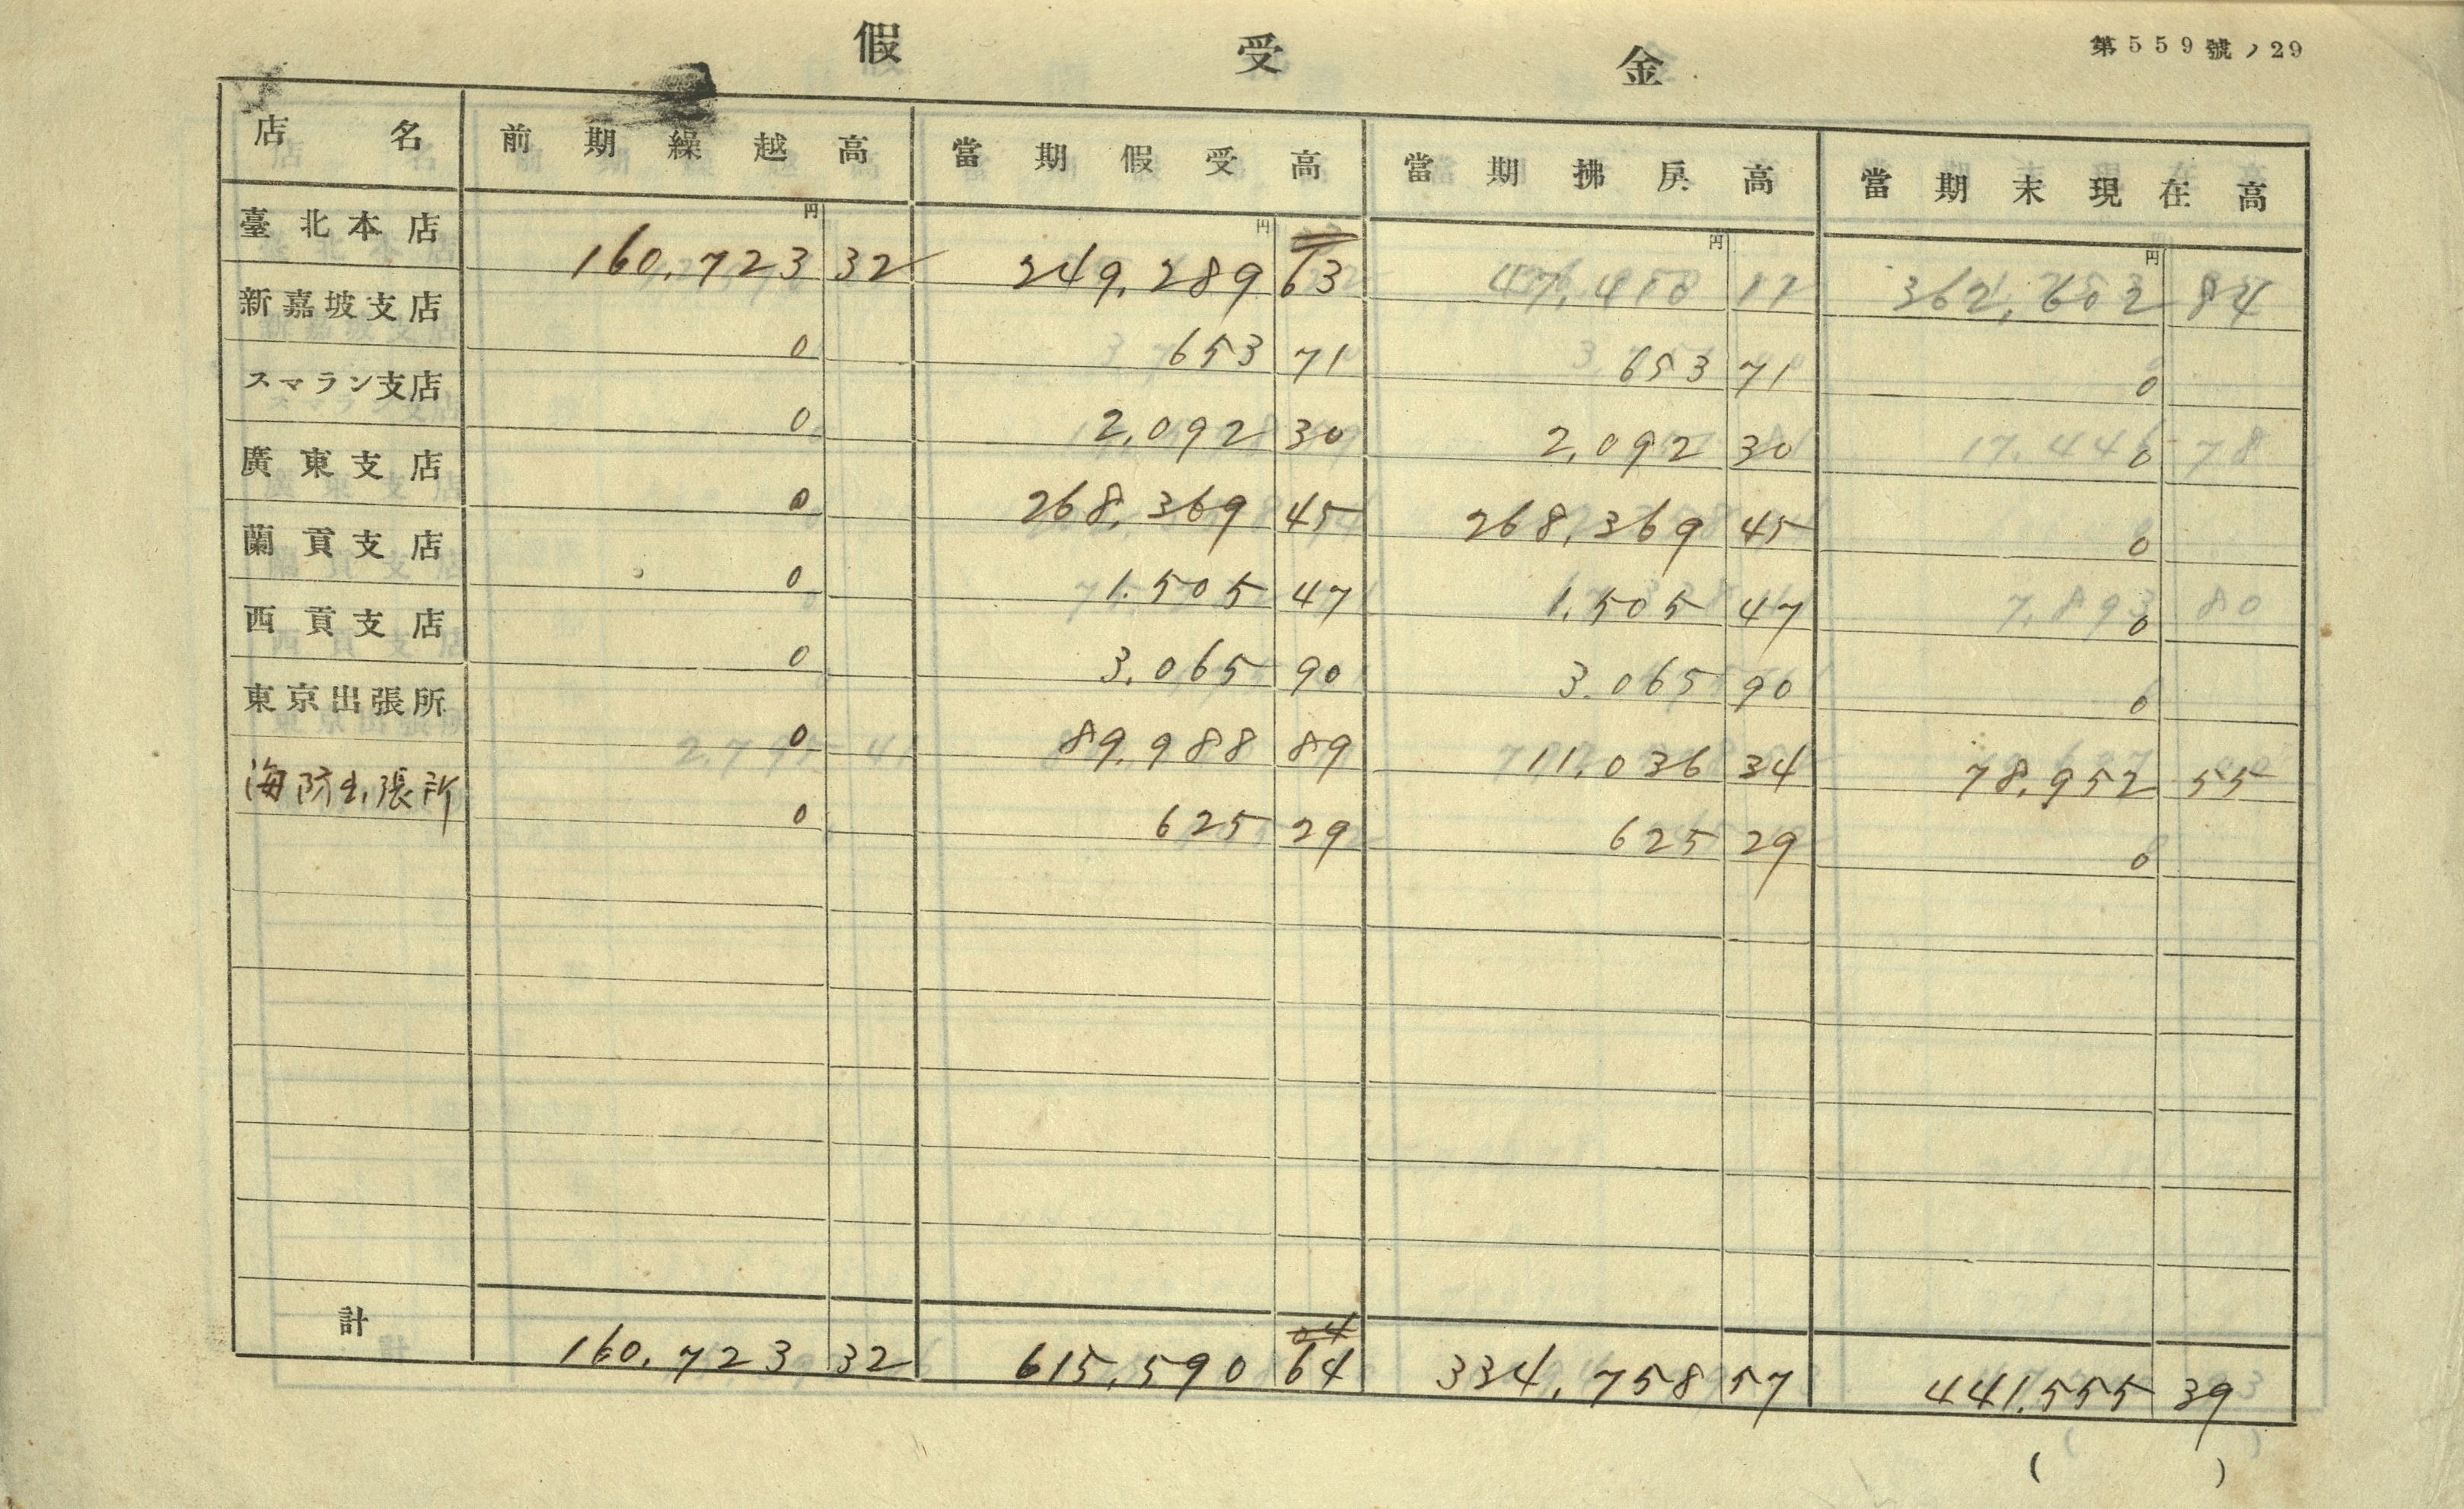 假受金
第559號ノ29
店名 前期繰越高 當期假受高 當期拂戻高 當期末現在高
円 円 円 円
臺北本店 160,723 32 249,289 63 47,410 11 362,602 84
新嘉坡支店 0 653 71 653 71 0
スマラン支店 0 2,092 30 2,092 30 0
廣東支店 0 268,369 45 268,369 45 0
蘭貢支店 0 1,505 47 1,505 47 0
西貢支店 0 3,065 90 3,065 90 0
東京出張所 0 89,988 89 11,036 34 78,952 55
海防出張所 0 625 29 625 29 0
04
計 160,723 32 615,590 64 334,758 57 441,555 39
( )